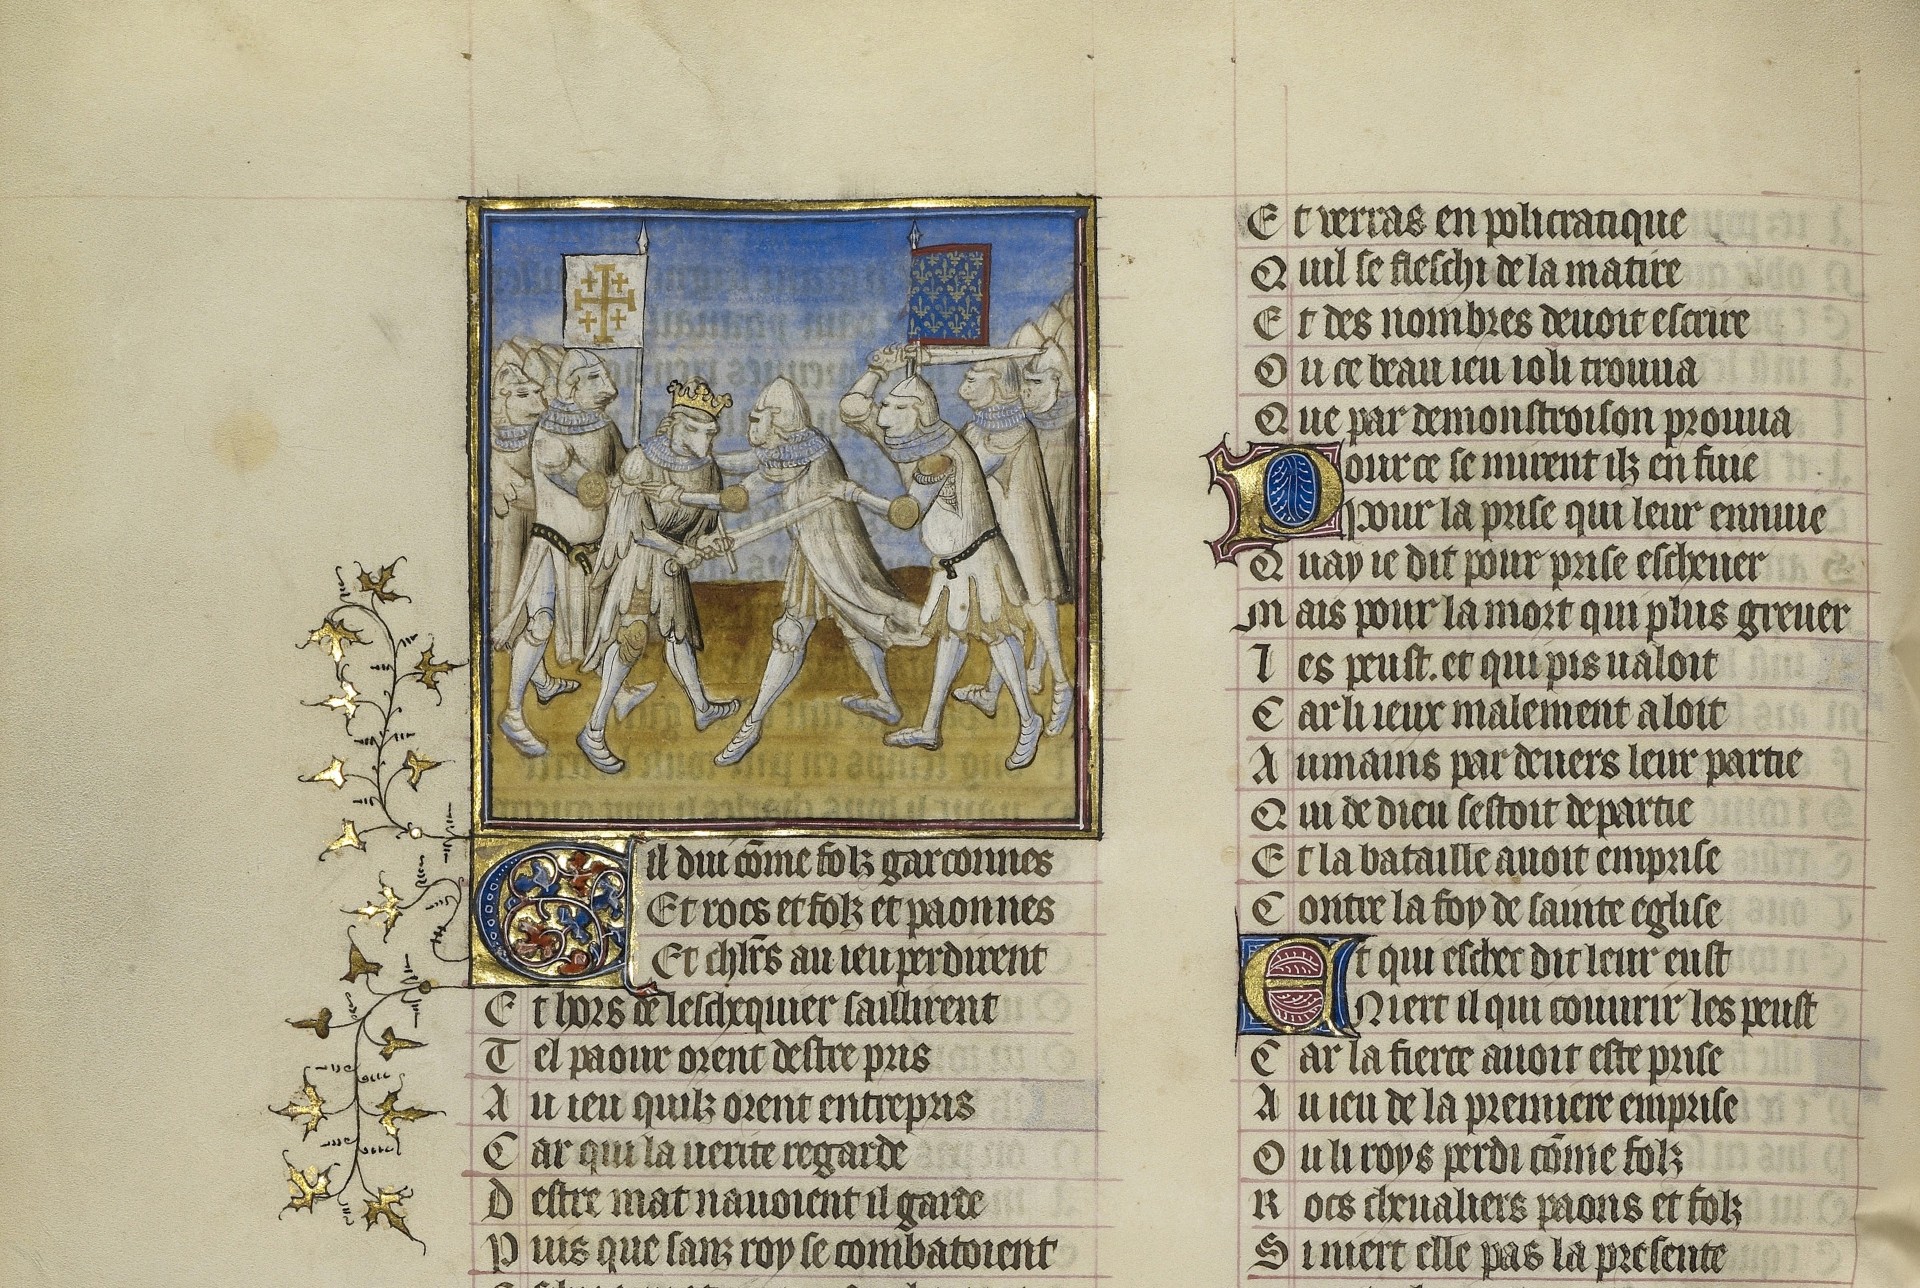 Cil dui cōme folz garconnes
Et rocs et folz et paonnes
Et chlr̄s au ieu perdirent
Et hors de leschequier saillirent
Tel paour orent destre pris
Au ieu quilz orent entrepris
Car qui la uerite regarde
Destre mat nauoient il garde
Puis que sanz roy se combatoient
Et uerras en policratique
Quil se fleschi de la matire
Et des nombres deuoit escrire
Ou ce beau ieu ioli trouua
Que par demonstroison prouua
Pour ce se mirent ilz en fuie
pour la prise qui leur ennuie
Quay ie dit pour prise escheuer
Mais pour la mort qui plus greuer
Les peust. et qui pis ualoit
Car li ieux malement aloit
Aumains par deuers leur partie
Qui de dieu sestoit departie
Et la bataille auoit emprise
Contre la foy de sainte eglise
Et qui eschec dit leur eust
Niert il qui couurir les peust
Car la fierce auoit este prise
Au ieu de la premiere emprise
Ou li roys perdi cōme folz
Rocs cheualiers paons et folz
Si niert elle pas la presente